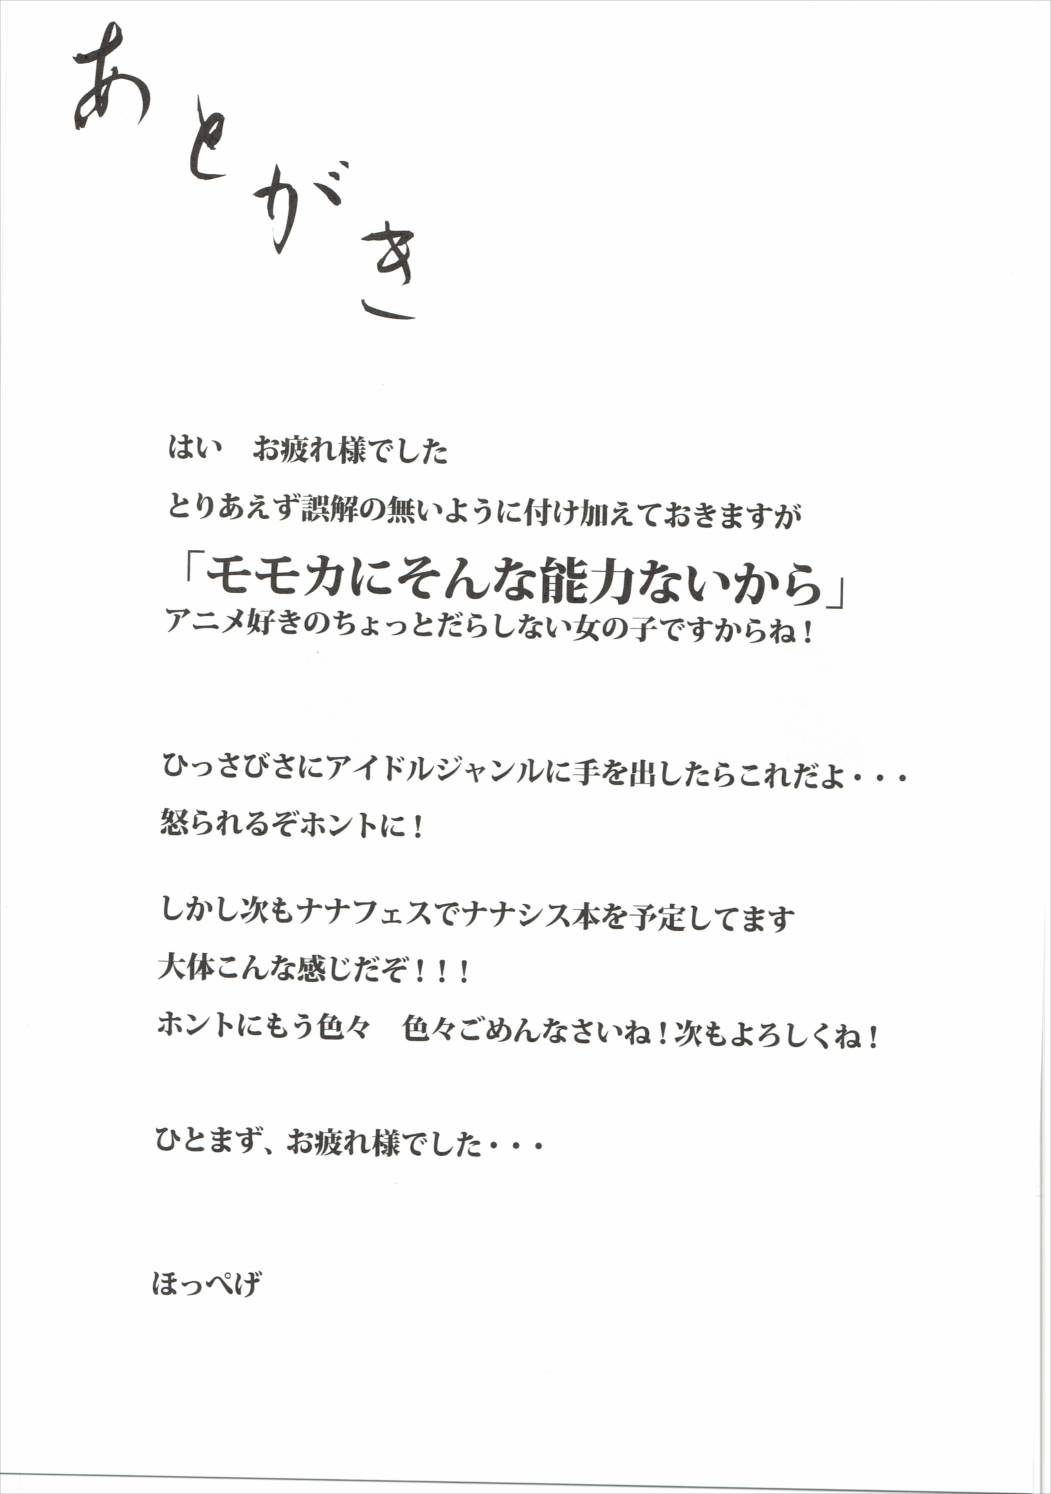 あとがき
はい　お疲れ様でした
とりあえず誤解の無いように付け加えておきますが
「モモカにそんな能力ないから」
アニメ好きのちょっとだらしない女の子ですからね！
ひっさびさにアイドルジャンルに手を出したらこれだよ・・・
怒られるぞホントに！
しかし次もナナフェスでナナシス本を予定してます
大体こんな感じだぞ！！！
ホントにもう色々　色々ごめんなさいね！次もよろしくね！
ひとまず、お疲れ様でした・・・
ほっぺげ